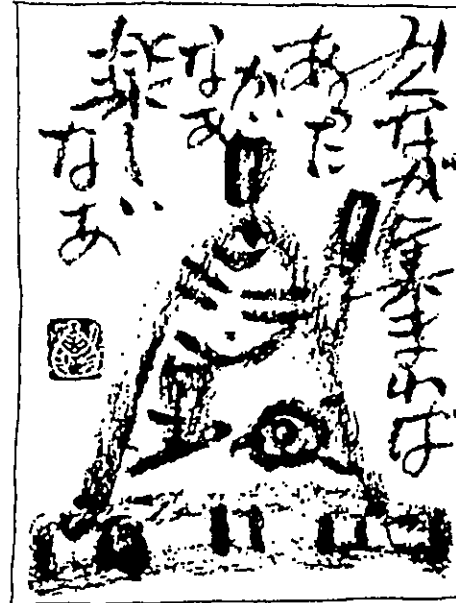 みんなが集まれば
あった
か
なあ
楽しい
なあ